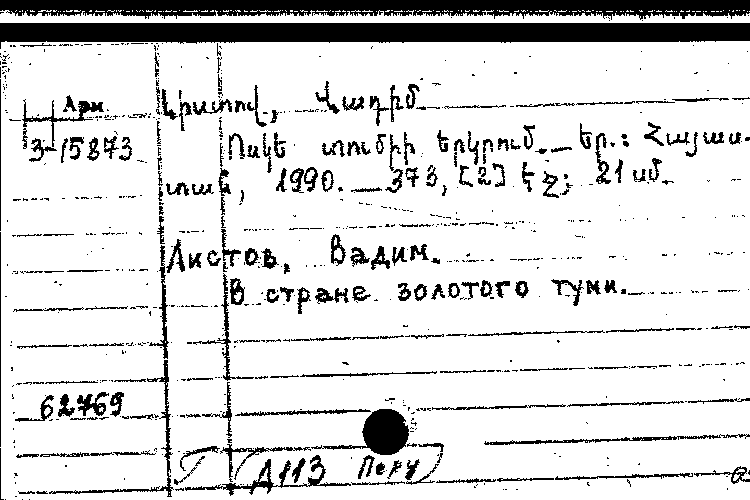 Арм
Լիստով, Վադիմ.
3-15873
Ոսկե տումիի երկրում. — Եր.: Հայաս-
տան, 1990. — 373, [2] էջ; 21 սմ.
Листов, Вадим.
В стране золотого туми.
62769
Д113 Перу